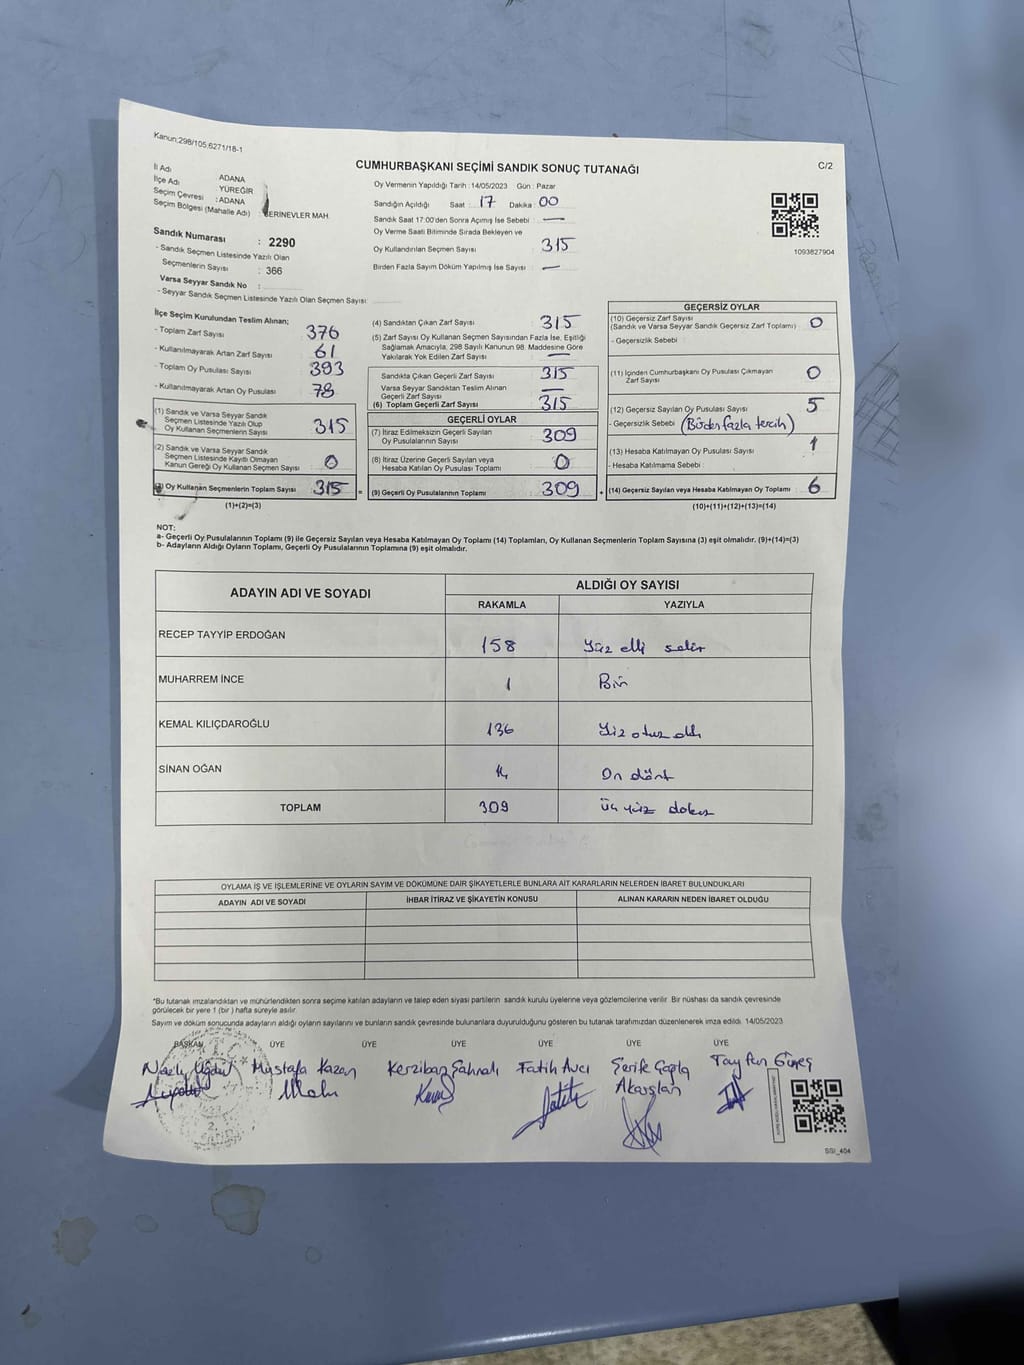 Kanun:298/105,6271/18-1
CUMHURBAŞKANI SEÇİMİ SANDIK SONUÇ TUTANAĞI
C/2
İl Adı ADANA
İlçe Adı : YÜREĞİR
Seçim Çevresi : ADANA
Seçim Bölgesi (Mahalle Adı) : SERİNEVLER MAH.
Sandık Numarası : 2290
- Sandık Seçmen Listesinde Yazılı Olan
Seçmenlerin Sayısı : 366
Varsa Seyyar Sandık No :
- Seyyar Sandık Seçmen Listesinde Yazılı Olan Seçmen Sayısı:
Oy Vermenin Yapıldığı Tarih : 14/05/2023 Gün : Pazar
Sandığın Açıldığı Saat : 17 Dakika : 00
Sandık Saat 17:00'den Sonra Açımış İse Sebebi : —
Oy Verme Saati Bitiminde Sırada Bekleyen ve
Oy Kullandırılan Seçmen Sayısı : 315
Birden Fazla Sayım Döküm Yapılmış İse Sayısı : —
1093827904
İlçe Seçim Kurulundan Teslim Alınan;
- Toplam Zarf Sayısı : 376
- Kullanılmayarak Artan Zarf Sayısı : 61
- Toplam Oy Pusulası Sayısı : 393
- Kullanılmayarak Artan Oy Pusulası : 78
(1) Sandık ve Varsa Seyyar Sandık
Seçmen Listesinde Yazılı Olup
Oy Kullanan Seçmenlerin Sayısı : 315
(2) Sandık ve Varsa Seyyar Sandık
Seçmen Listesinde Kayıtlı Olmayan
Kanun Gereği Oy Kullanan Seçmen Sayısı : 0
(3) Oy Kullanan Seçmenlerin Toplam Sayısı : 315
(1)+(2)=(3)
(4) Sandıktan Çıkan Zarf Sayısı : 315
(5) Zarf Sayısı Oy Kullanan Seçmen Sayısından Fazla İse, Eşitliği
Sağlamak Amacıyla, 298 Sayılı Kanunun 98. Maddesine Göre
Yakılarak Yok Edilen Zarf Sayısı : —
Sandıkta Çıkan Geçerli Zarf Sayısı : 315
Varsa Seyyar Sandıktan Teslim Alınan
Geçerli Zarf Sayısı : —
(6) Toplam Geçerli Zarf Sayısı : 315
GEÇERLİ OYLAR
(7) İtiraz Edilmeksizin Geçerli Sayılan
Oy Pusulalarının Sayısı : 309
(8) İtiraz Üzerine Geçerli Sayılan veya
Hesaba Katılan Oy Pusulası Toplamı : 0
= (9) Geçerli Oy Pusulalarının Toplamı : 309
GEÇERSİZ OYLAR
(10) Geçersiz Zarf Sayısı
(Sandık ve Varsa Seyyar Sandık Geçersiz Zarf Toplamı) : 0
- Geçersizlik Sebebi :
(11) İçinden Cumhurbaşkanı Oy Pusulası Çıkmayan
Zarf Sayısı : 0
(12) Geçersiz Sayılan Oy Pusulası Sayısı : 5
- Geçersizlik Sebebi : (Birden fazla tercih)
(13) Hesaba Katılmayan Oy Pusulası Sayısı : 1
- Hesaba Katılmama Sebebi :
+ (14) Geçersiz Sayılan veya Hesaba Katılmayan Oy Toplamı : 6
(10)+(11)+(12)+(13)=(14)
NOT:
a- Geçerli Oy Pusulalarının Toplamı (9) ile Geçersiz Sayılan veya Hesaba Katılmayan Oy Toplamı (14) Toplamları, Oy Kullanan Seçmenlerin Toplam Sayısına (3) eşit olmalıdır. (9)+(14)=(3)
b- Adayların Aldığı Oyların Toplamı, Geçerli Oy Pusulalarının Toplamına (9) eşit olmalıdır.
ADAYIN ADI VE SOYADI ALDIĞI OY SAYISI
RAKAMLA YAZIYLA
RECEP TAYYİP ERDOĞAN 158 Yüz elli sekiz
MUHARREM İNCE 1 Bir
KEMAL KILIÇDAROĞLU 136 Yüz otuz altı
SİNAN OĞAN 14 On dört
TOPLAM 309 Üç yüz dokuz
OYLAMA İŞ VE İŞLEMLERİNE VE OYLARIN SAYIM VE DÖKÜMÜNE DAİR ŞİKAYETLERLE BUNLARA AİT KARARLARIN NELERDEN İBARET BULUNDUKLARI
ADAYIN ADI VE SOYADI İHBAR İTİRAZ VE ŞİKAYETİN KONUSU ALINAN KARARIN NEDEN İBARET OLDUĞU
*Bu tutanak imzalandıktan ve mühürlendikten sonra seçime katılan adayların ve talep eden siyasi partilerin sandık kurulu üyelerine veya gözlemcilerine verilir. Bir nüshası da sandık çevresinde
görülecek bir yere 1 (bir) hafta süreyle asılır.
Sayım ve döküm sonucunda adayların aldığı oyların sayılarını ve bunların sandık çevresinde bulunanlara duyurulduğunu gösteren bu tutanak tarafımızdan düzenlenerek imza edildi. 14/05/2023
BAŞKAN ÜYE ÜYE ÜYE ÜYE ÜYE ÜYE
Mustafa Kazan Kerziban Şahnalı Fatih Avcı Şerife Çağla Tayfun Güneş
Akarslan
SSI_404